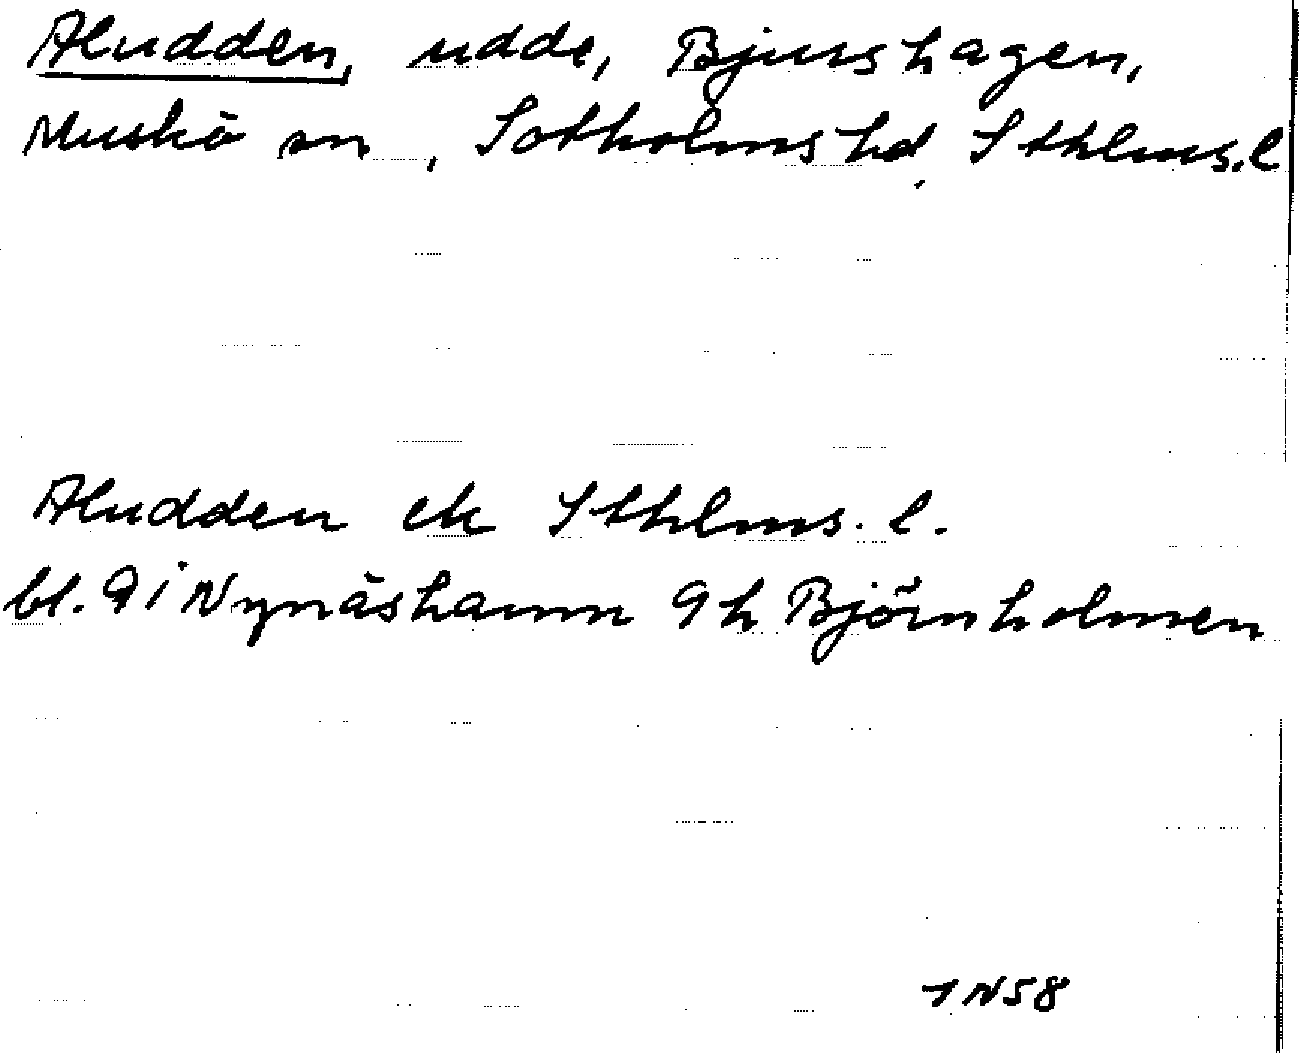 Aludden, udde, Bjurshagen,
Muskö sn, Sotholms hd, Sthlms. l
Aludden ek Sthlms. l.
bl. 9 i Nynäshamn 9 h Björnholmen
1N58